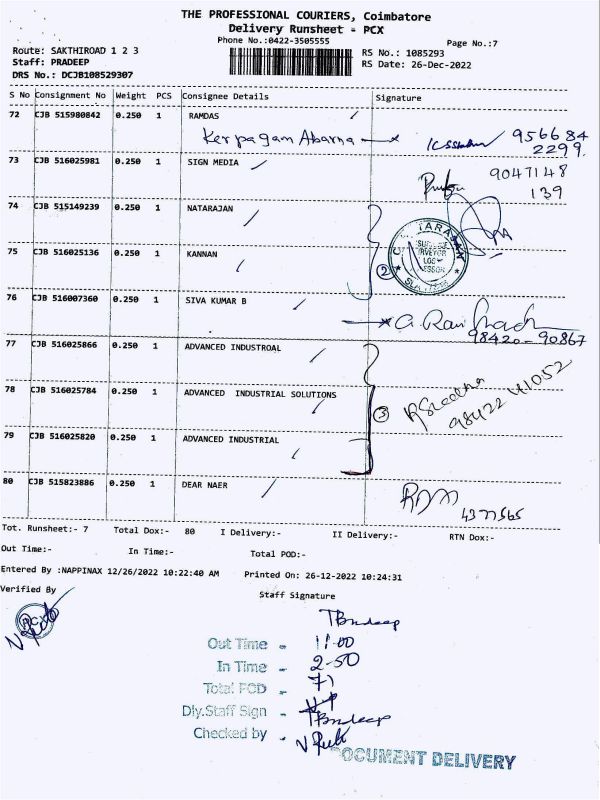 THE PROFESSIONAL COURIERS, Coimbatore
Delivery Runsheet - PCX
Phone No.:0422-3505555
Page No.:7
Route: SAKTHIROAD 1 2 3
RS No.: 1085293
Staff: PRADEEP
RS Date: 26-Dec-2022
DRS No.: DCJB108529307
S No Consignment No Weight PCS Consignee Details Signature
72 CJB 515980842 0.250 1 RAMDAS
956684
2299
73 CJB 516025981 0.250 1 SIGN MEDIA
9047148
139
74 CJB 515149239 0.250 1 NATARAJAN
75 CJB 516025136 0.250 1 KANNAN
2
76 CJB 516007360 0.250 1 SIVA KUMAR B
98420-90867
77 CJB 516025866 0.250 1 ADVANCED INDUSTROAL
78 CJB 516025784 0.250 1 ADVANCED INDUSTRIAL SOLUTIONS
3
98422 41052
79 CJB 516025820 0.250 1 ADVANCED INDUSTRIAL
80 CJB 515823886 0.250 1 DEAR NAER
4377565
Tot. Runsheet:- 7 Total Dox:- 80 I Delivery:- II Delivery:- RTN Dox:-
Out Time:- In Time:- Total POD:-
Entered By :NAPPINAX 12/26/2022 10:22:40 AM Printed On: 26-12-2022 10:24:31
Verified By
Staff Signature
Out Time - 11-00
In Time - 2-50
Total POD - 71
Dly.Staff Sign -
Checked by -
DOCUMENT DELIVERY